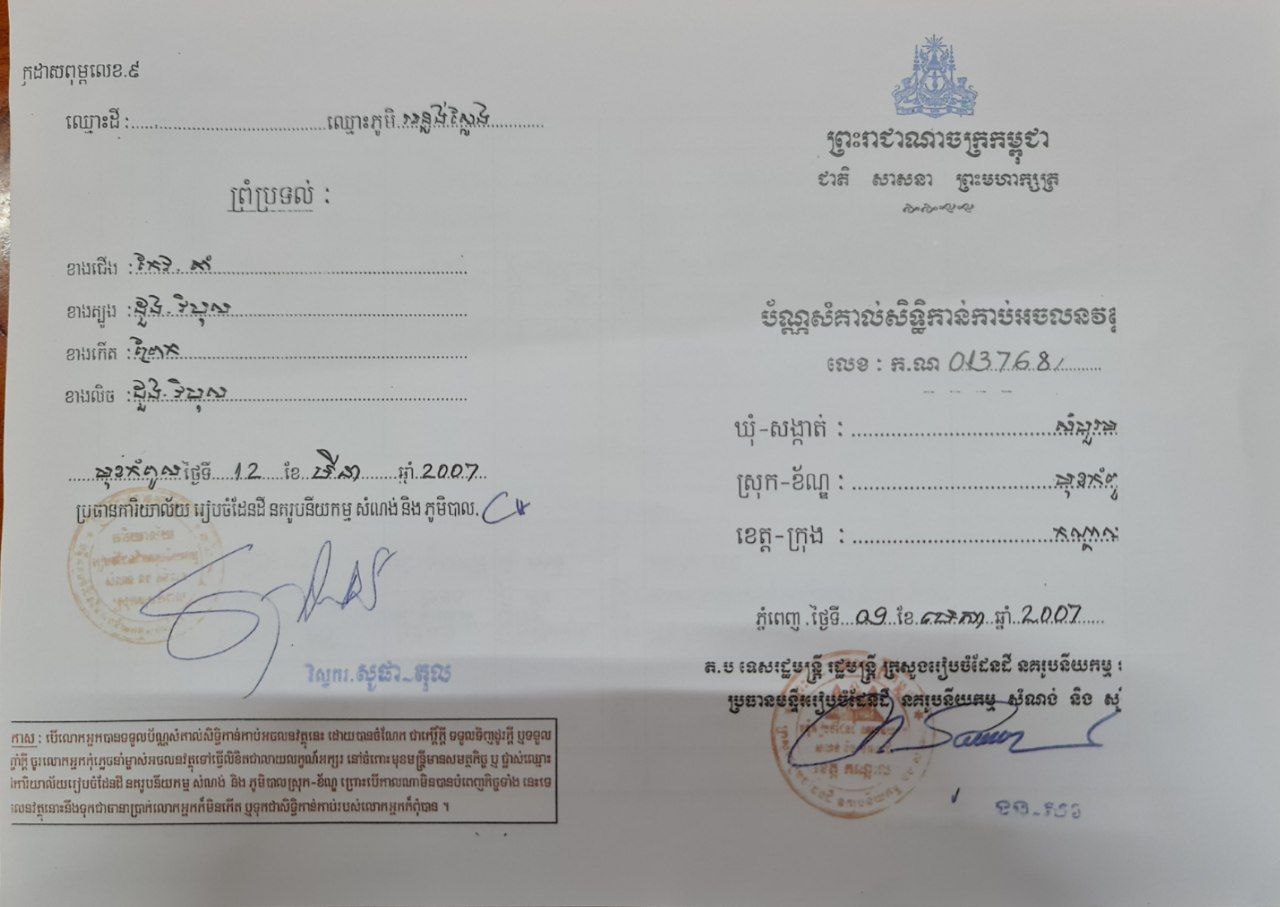 ក្រដាសពុម្ពលេខ.៩
ឈ្មោះដី :.................................. ឈ្មោះភូមិ.អន្លង់ស្លែង..........
ព្រំប្រទល់ :
ខាងជើង :កែវ. គាំ..........................................
ខាងត្បូង :ដួង. វិបុស..........................................
ខាងកើត :ព្រែក..........................................
ខាងលិច :ដួង. វិបុស..........................................
....មុខកំពូល ថ្ងៃទី....12....ខែ...មីនា......ឆ្នាំ 2007..
ប្រធានការិយាល័យ រៀបចំដែនដី នគរូបនីយកម្ម សំណង់ និង ភូមិបាល.
វិស្វករ.សូផា_តុល
កាស : បើលោកអ្នកបានទទួលប័ណ្ណសំគាល់សិទ្ធិកាន់កាប់អចលនវត្ថុនេះ ដោយបានចំណែក ជាកេរ្តិ៍ក្តី ទទួលទិញដូរក្តី ឬទទួល
ណាំក្តី ចូរលោកអ្នកកុំភ្លេចនាំម្ចាស់អចលនវត្ថុទៅធ្វើលិខិតជាលាយលក្ខណ៍អក្សរ នៅចំពោះមុខមន្ត្រីមានសមត្ថកិច្ច ឬ ផ្លាស់ឈ្មោះ
ការិយាល័យរៀបចំដែនដី នគរូបនីយកម្ម សំណង់ និង ភូមិបាលស្រុក-ខ័ណ្ឌ ព្រោះបើកាលណាមិនបានបំពេញកិច្ចទាំង នេះទេ
លនវត្ថុនោះនឹងទុកជាធានាប្រាក់លោកអ្នកក៏មិនកើត ឬទុកជាសិទ្ធិកាន់កាប់របស់លោកអ្នកក៏ពុំបាន ។
ព្រះរាជាណាចក្រកម្ពុជា
ជាតិ សាសនា ព្រះមហាក្សត្រ
ប័ណ្ណសំគាល់សិទ្ធិកាន់កាប់អចលនវត្ថុ
លេខ : ក.ណ 013768/
ឃុំ-សង្កាត់ :
ស្រុក-ខ័ណ្ឌ : មុខកំពូ
ខេត្ត-ក្រុង : កណ្តាល
ភ្នំពេញ .ថ្ងៃទី...09..ខែ.មេសា..ឆ្នាំ..2007
ត.ប ទេសរដ្ឋមន្ត្រី រដ្ឋមន្ត្រី ក្រសួងរៀបចំដែនដី នគរូបនីយកម្ម
ប្រធានមន្ទីររៀបចំដែនដី នគរូបនីយកម្ម សំណង់ និង សុ